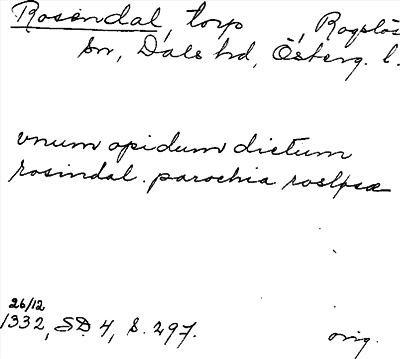 Rosendal, torp, Rogslös
sn, Dals hd, Österg. l.
vnum opidum dictum
rosindal. parochia roslpsæ
26/12
1332, SD 4, S. 297.
orig.